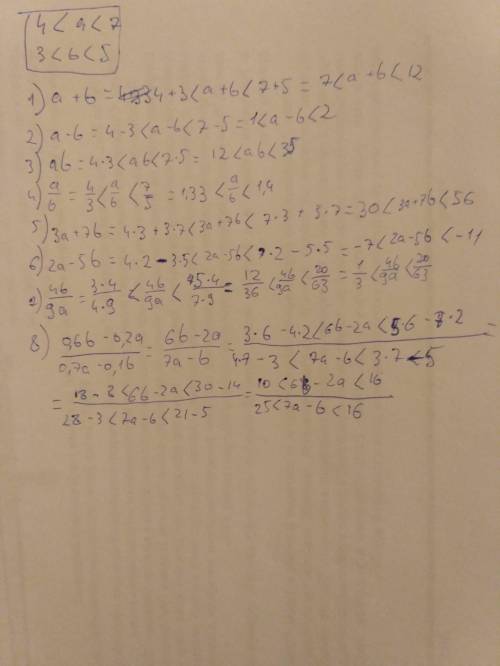 4 < a < 7
3 < b < 5
1) a + b = 4 + 3 < a + b < 7 + 5 = 7 < a + b < 12
2) a - b = 4 - 3 < a - b < 7 - 5 = 1 < a - b < 2
3) ab = 4·3 < ab < 7·5 = 12 < ab < 35
4) a/b = 4/3 < a/b < 7/5 = 1,33 < a/b < 1,4
5) 3a + 7b = 4·3 + 3·7 < 3a + 7b < 7·3 + 5·7 = 30 < 3a + 7b < 56
6) 2a - 5b = 4·2 - 3·5 < 2a - 5b < 7·2 - 5·5 = -7 < 2a - 5b < -11
4b/9a = 3·4/4·9 < 4b/9a < 5·4/7·9 = 12/36 < 4b/9a < 20/63 = 1/3 < 4b/9a < 20/63
8) 0,6b - 0,2a / 0,7a - 0,1b = 6b - 2a / 7a - b = 3·6 - 4·2 < 6b - 2a < 5·6 - 7·2 / 4·7 - 3 < 7a - b < 3·7 - 5 =
= 18 - 8 < 6b - 2a < 30 - 14 / 28 - 3 < 7a - b < 21 - 5 = 10 < 6b - 2a < 16 / 25 < 7a - b < 16